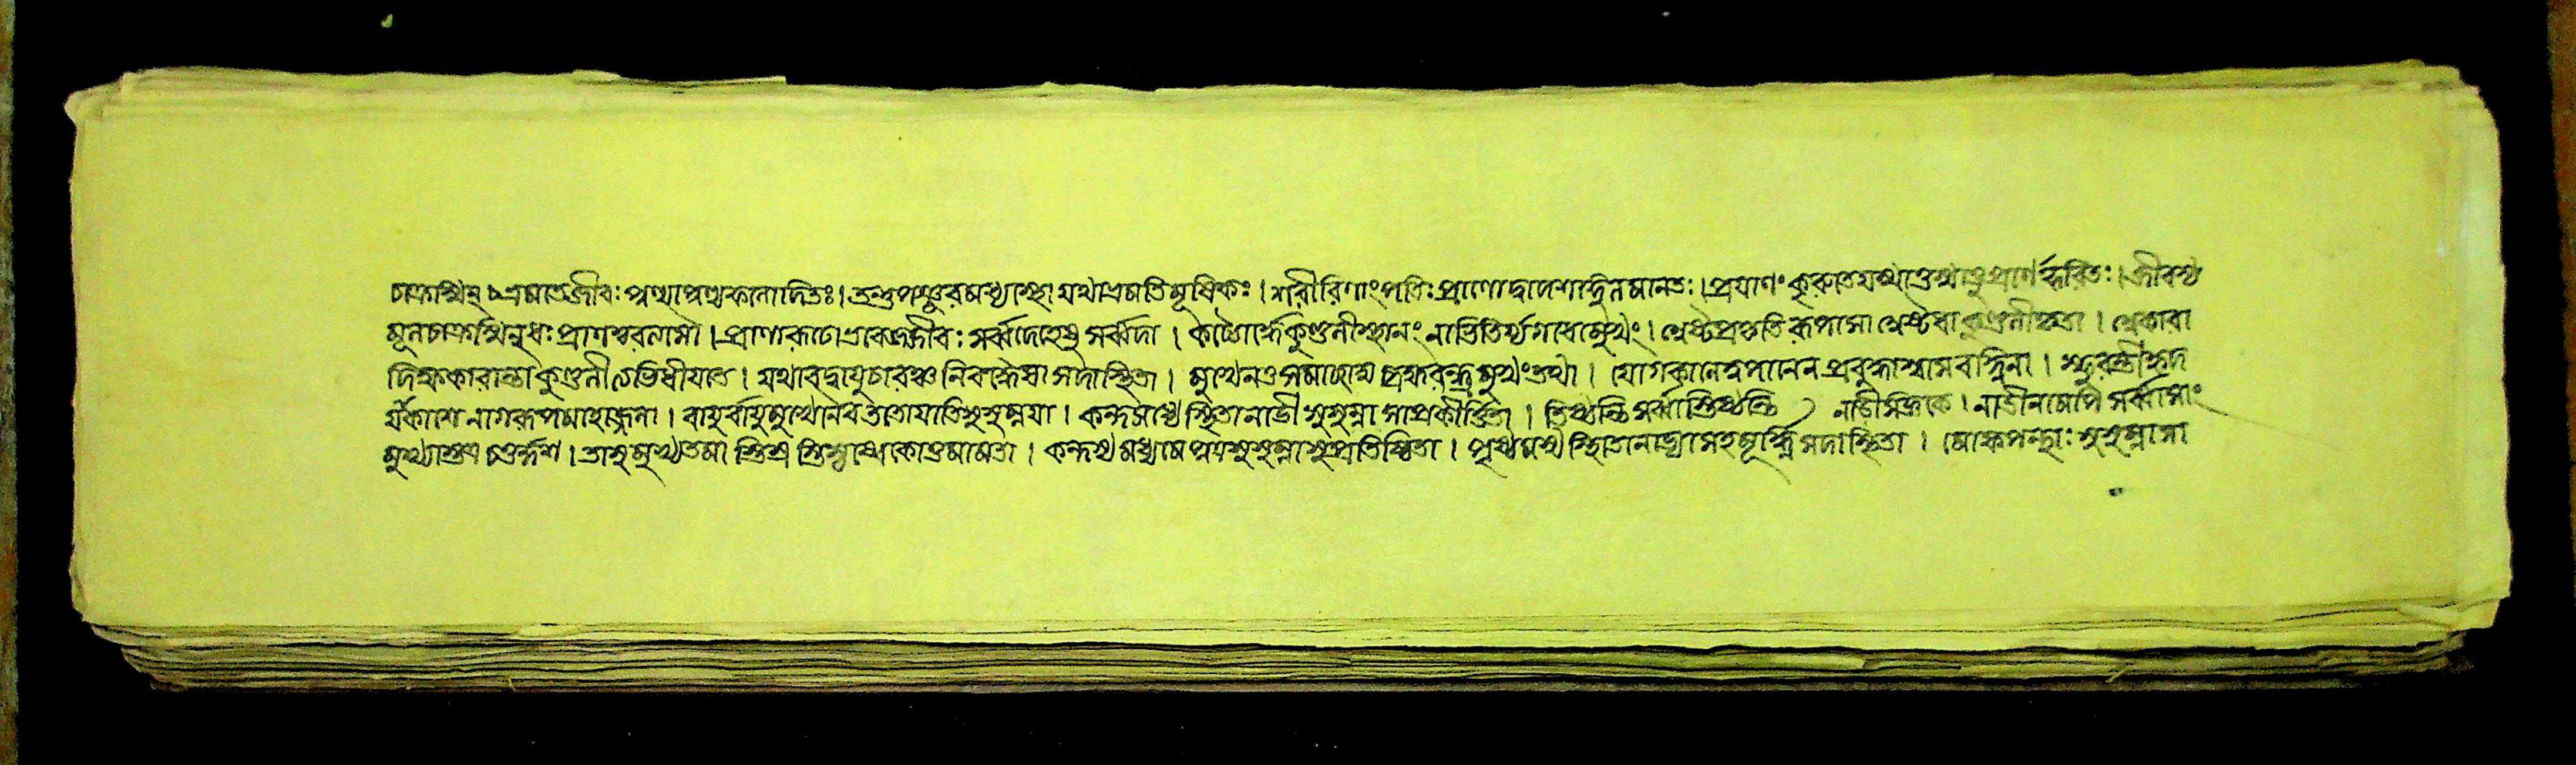 চক্রেস্মিন্ ভ্রমতে জীবঃ পুণ্যাপুণ্যফলার্দিতঃ। তন্তুপঞ্জরমধ্যস্থো যথা ভ্রমতি মূষিকঃ। শরীরিণাং পতিঃ প্রাণো দ্বাদশাঙ্গুলমানতঃ। প্রয়াণং কুরুতে যস্মাত্তস্মাৎ প্রাণ ইতীরিতঃ। জীবস্য
মূলচক্রেস্মিন্নধঃ প্রাণশ্চরত্যসৌ। প্রাণারূঢ়ো ভবেজ্জীবঃ সর্ব্বদেহেষু সর্ব্বদা। কুণ্ডলীস্থানং নাভিতির্য্যগধোমুখং। অষ্টপ্রকৃতিরূপা সা অষ্টধা কুণ্ডলীকৃতা। অকারা
দিক্ষকারান্তা কুণ্ডলীত্যভিধীয়তে। যথাবদ্বায়ুচারঞ্চ নিরুধ্যৈষা সদা স্থিতা। মুখেনৈব সমাচ্ছাদ্য ব্রহ্মরন্ধ্রমুখং তথা। যোগকালেহপানেন প্রবুদ্ধা শ্বাসবহ্নিনা। স্ফুরন্তী হৃদ
য়াকাশে নাগরূপা মহোজ্জ্বলা। বায়ুর্বায়ুমুখেনৈব ততো যাতি সুষুম্নয়া। কন্দমধ্যে স্থিতা নাড়ী সুষুম্না সা প্রকীর্ত্তিতা। তিষ্ঠন্তি সর্ব্বাস্তিষ্ঠন্তি নাড়ীচক্রকে। নাড়ীনামপি সর্ব্বাসাং
মুখ্যাস্তত্র চতুর্দ্দশ। তাসু মুখ্যতমাস্তিস্রস্তিসৃষ্বেকোত্তমা মতা। কন্দস্য মধ্যমে সুষুম্না সুপ্রতিষ্ঠিতা। পৃষ্ঠমধ্যস্থিতা নাড্যা সহ মূর্দ্ধ্নি সদা স্থিতা। মোক্ষপন্থাঃ সুষুম্না সা